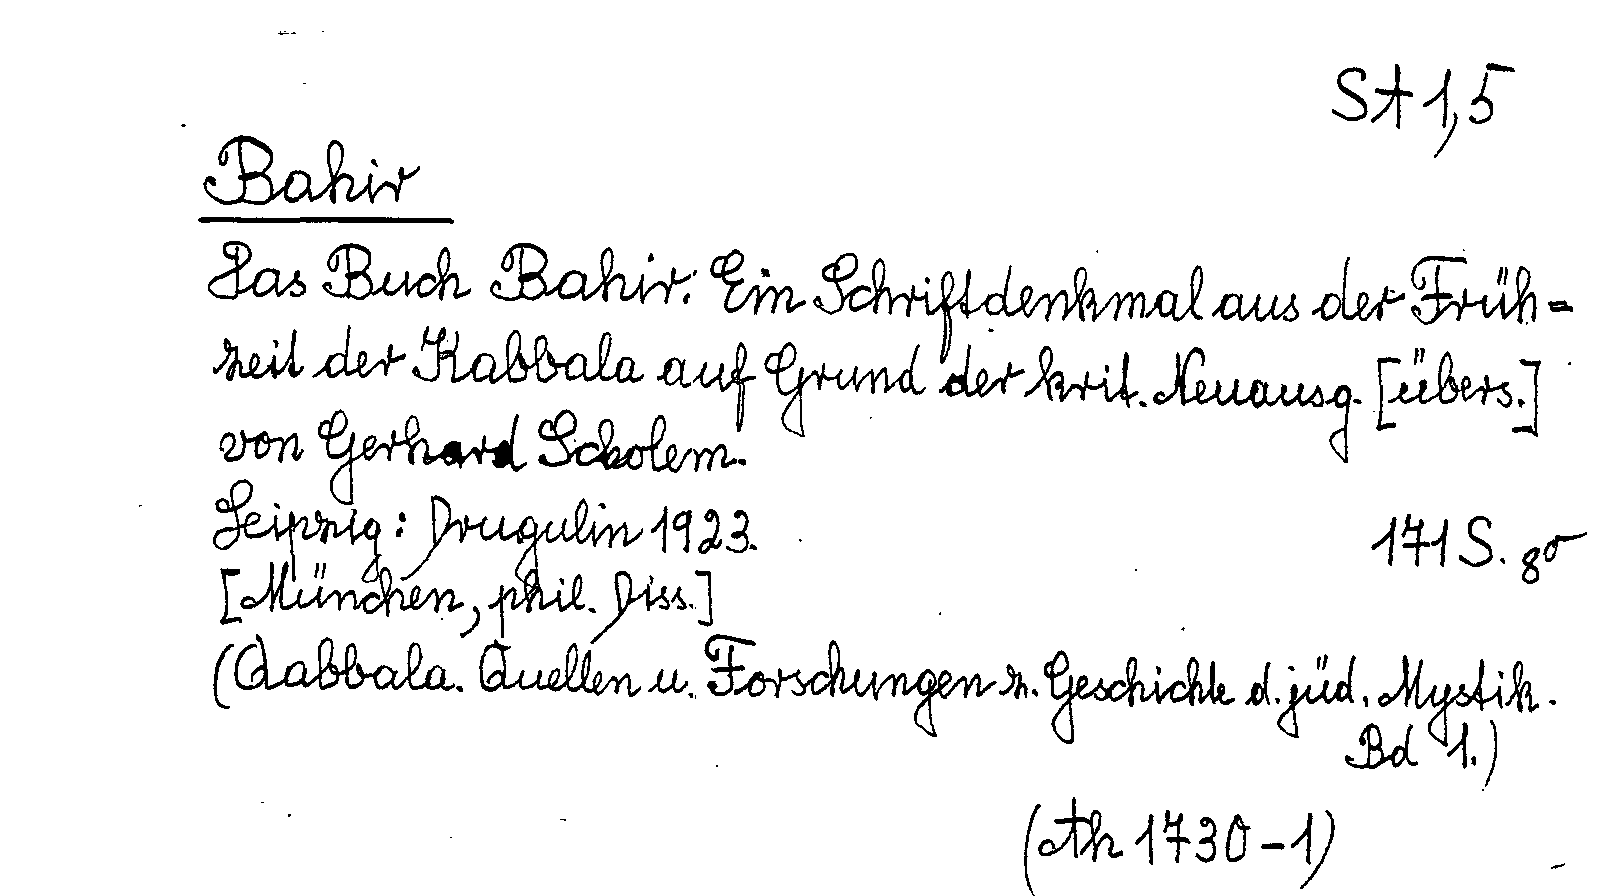 St 1,5
Bahir
Das Buch Bahir. Ein Schriftdenkmal aus der Früh=
zeit der Kabbala auf Grund der krit. Neuausg. [übers.]
von Gerhard Scholem.
Leipzig: Drugulin 1923. 171 S. 8°
[München, phil. Diss.]
(Qabbala. Quellen u. Forschungen z. Geschichte d. jüd. Mystik.
Bd 1.)
(Ah 1730-1)